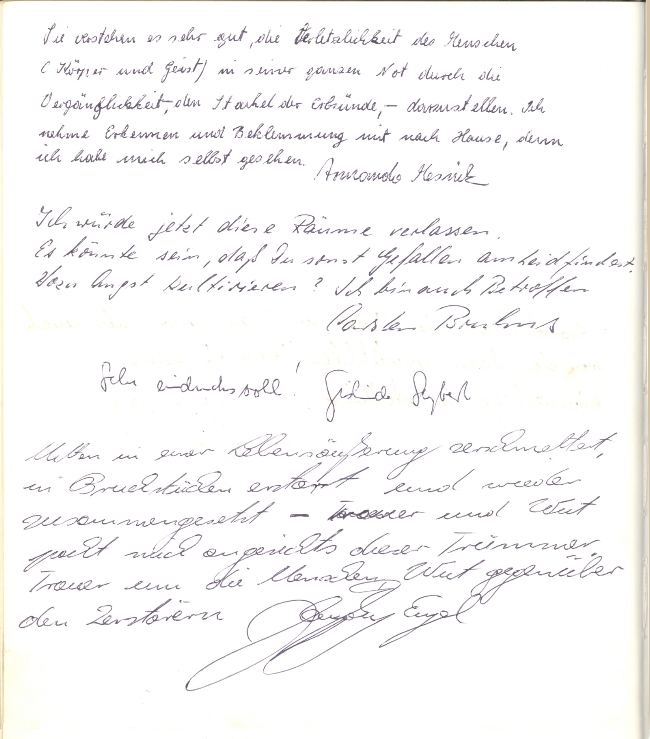 Sie verstehen es sehr gut, die Verletzlichkeit des Menschen
(Körper und Geist) in seiner ganzen Not durch die
Vergänglichkeit, den Stachel der Erbsünde, – darzustellen. Ich
nehme Erkennen und Beklemmung mit nach Hause, denn
ich habe mich selbst gesehen. Armando
Ich würde jetzt diese Räume verlassen.
Es könnte sein, daß Du sonst Gefallen am Leid findest.
Wozu Angst kultivieren? Ich bin auch Betroffen
Carsten Bruhns
Sehr eindrucksvoll!
Mitten in einer Lebensäußerung zerschmettert,
in Bruchstücken erstarrt und wieder
zusammengesetzt – Trauer und Wut
packt mich angesichts dieser Trümmer.
Trauer um die Menschen, Wut gegenüber
den Zerstörern Engel